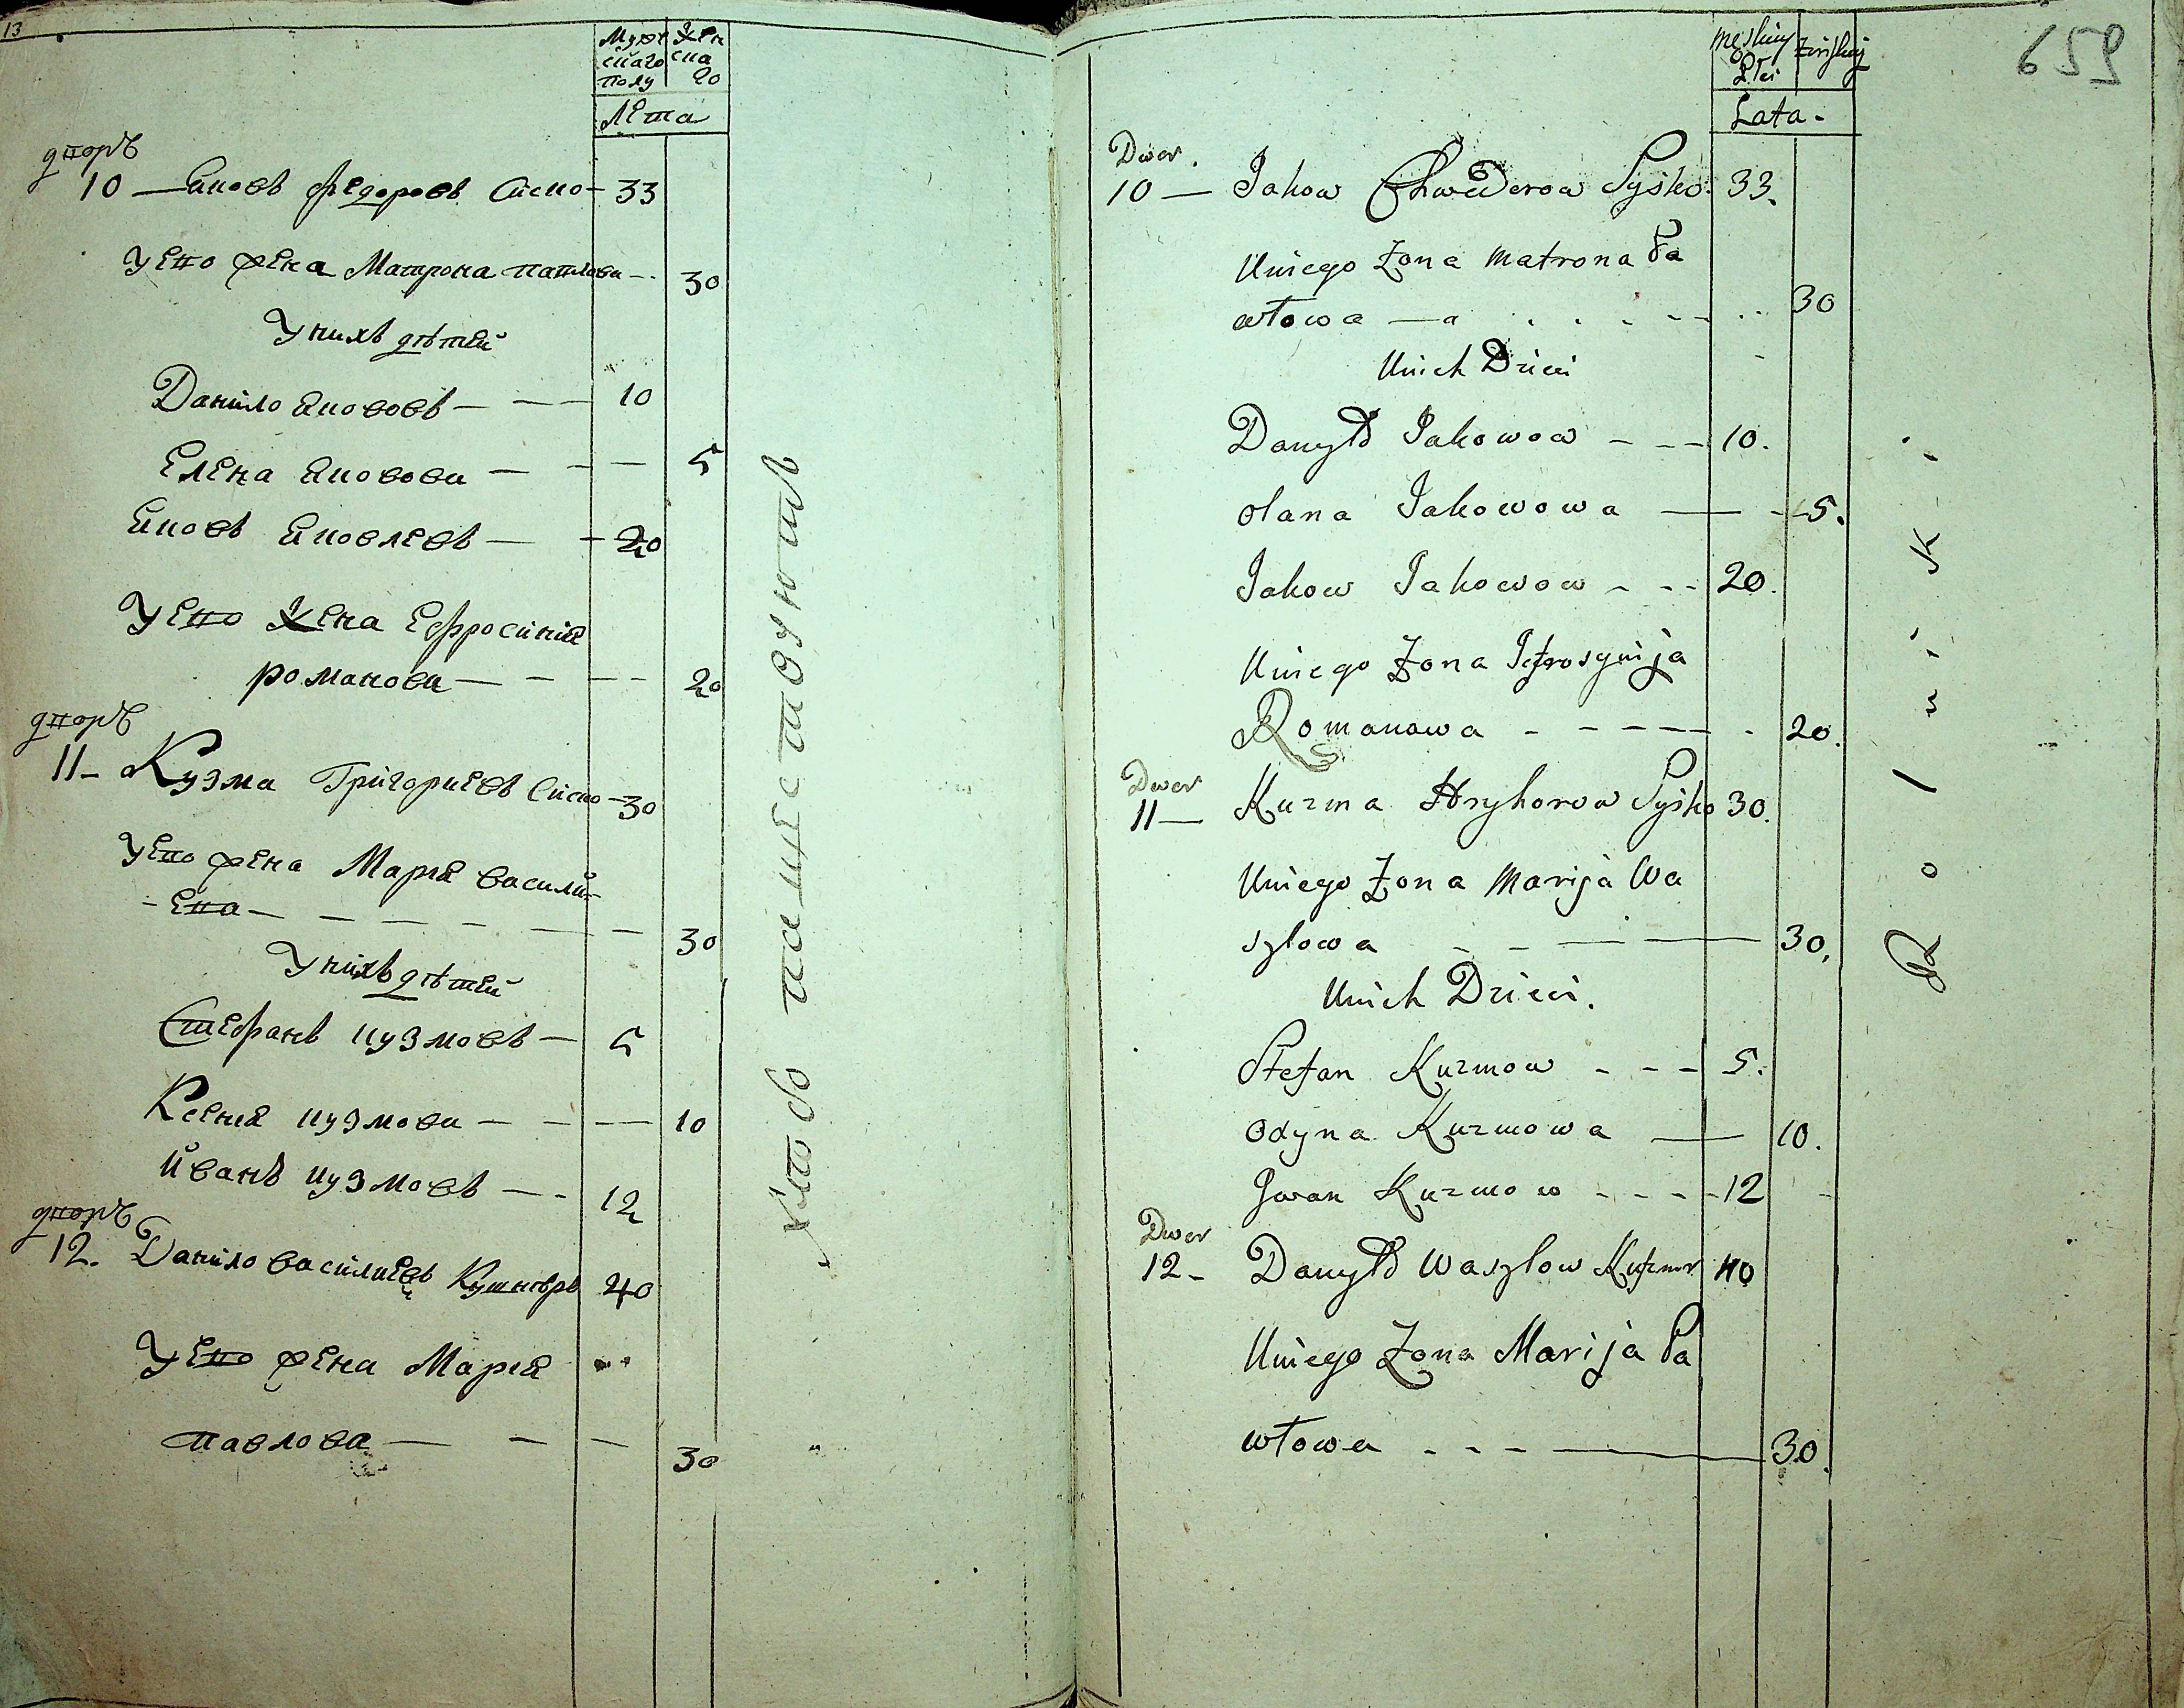 13
Мужскаго полу
Женскаго
Лета
дворъ
10 — Яковъ Федоровъ Сиско — 33
У ево жена Матрона павлова — 30
У нихъ дѣтей
Данило Якововъ — — — 10
Елена Яковова — — — 5
Яковъ Яковлевъ — — 20
У ево жена Ефросинія
романова — — — — 20
дворъ
11 — Кузма Григориевъ Сиско — 30
У ево жена Марія васили-
- ева — — — — — — 30
У нихъ дѣтей
Стефанъ кузмовъ — 5
Ксенія кузмова — — — 10
Иванъ кузмовъ — — 12
дворъ
12. Данило василиевъ Кушнѣръ 40
У ево жена Марія
павлова — — — 30
Хлебопашествуютъ
659
męskiey Płci
żeńskiej
Lata -
Dwor.
10 — Jakow Chwederow Syśko 33.
U niego Żona Matrona Pa
włowa — 30
U nich Dzieci
Danyło Jakowow - - - 10.
Olana Jakowowa — 5.
Jakow Jakowow - - - 20.
U niego Żona Jefrosynija
Romanowa - - - - - 20.
Dwor
11 — Kuzma Hryhorow Syśko 30.
U niego Żona Marija Wa
sylowa - - — — 30.
U nich Dzieci.
Stefan Kuzmow - - - 5.
Kuzmowa — 10.
Jwan Kuzmow - - - - 12
Dwor
12 - Danyło Wasylow 40
U niego Żona Marija Pa
włowa - - - — 30.
Rolniki